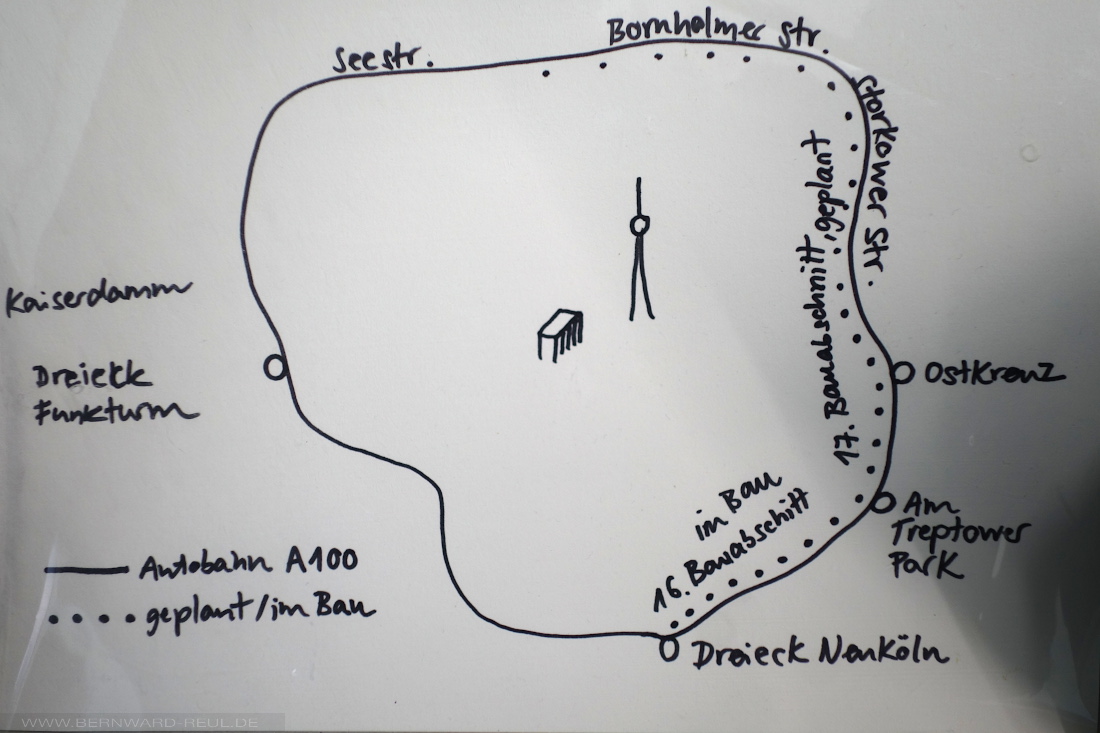 Seestr.
Bornholmer Str.
Storkower Str.
17. Bauabschnitt, geplant
Kaiserdamm
Dreieck
Funkturm
Ostkreuz
im Bau
16. Bauabschitt
Am
Treptower
Park
Autobahn A100
geplant/im Bau
Dreieck Neuköln
WWW.BERNWARD-REUL.DE